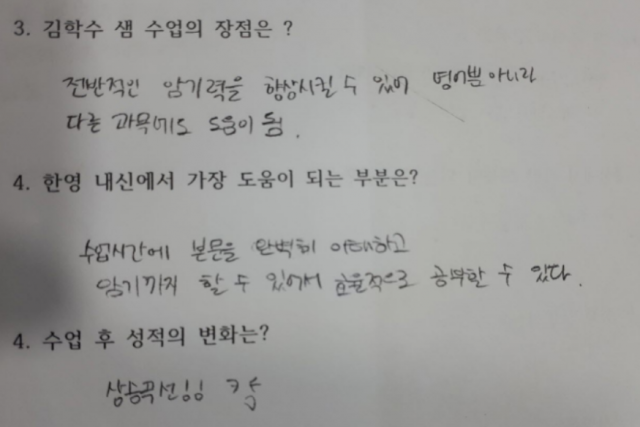 3. 김학수 샘 수업의 장점은 ?
전반적인 암기력을 향상시킬 수 있어 영어뿐아니라
다른 과목에도 도움이 됨.
4. 한영 내신에서 가장 도움이 되는 부분은?
수업시간에 본문을 완벽히 이해하고
암기까지 할 수 있어서 효율적으로 공부할 수 있다.
4. 수업 후 성적의 변화는?
상승곡선!!